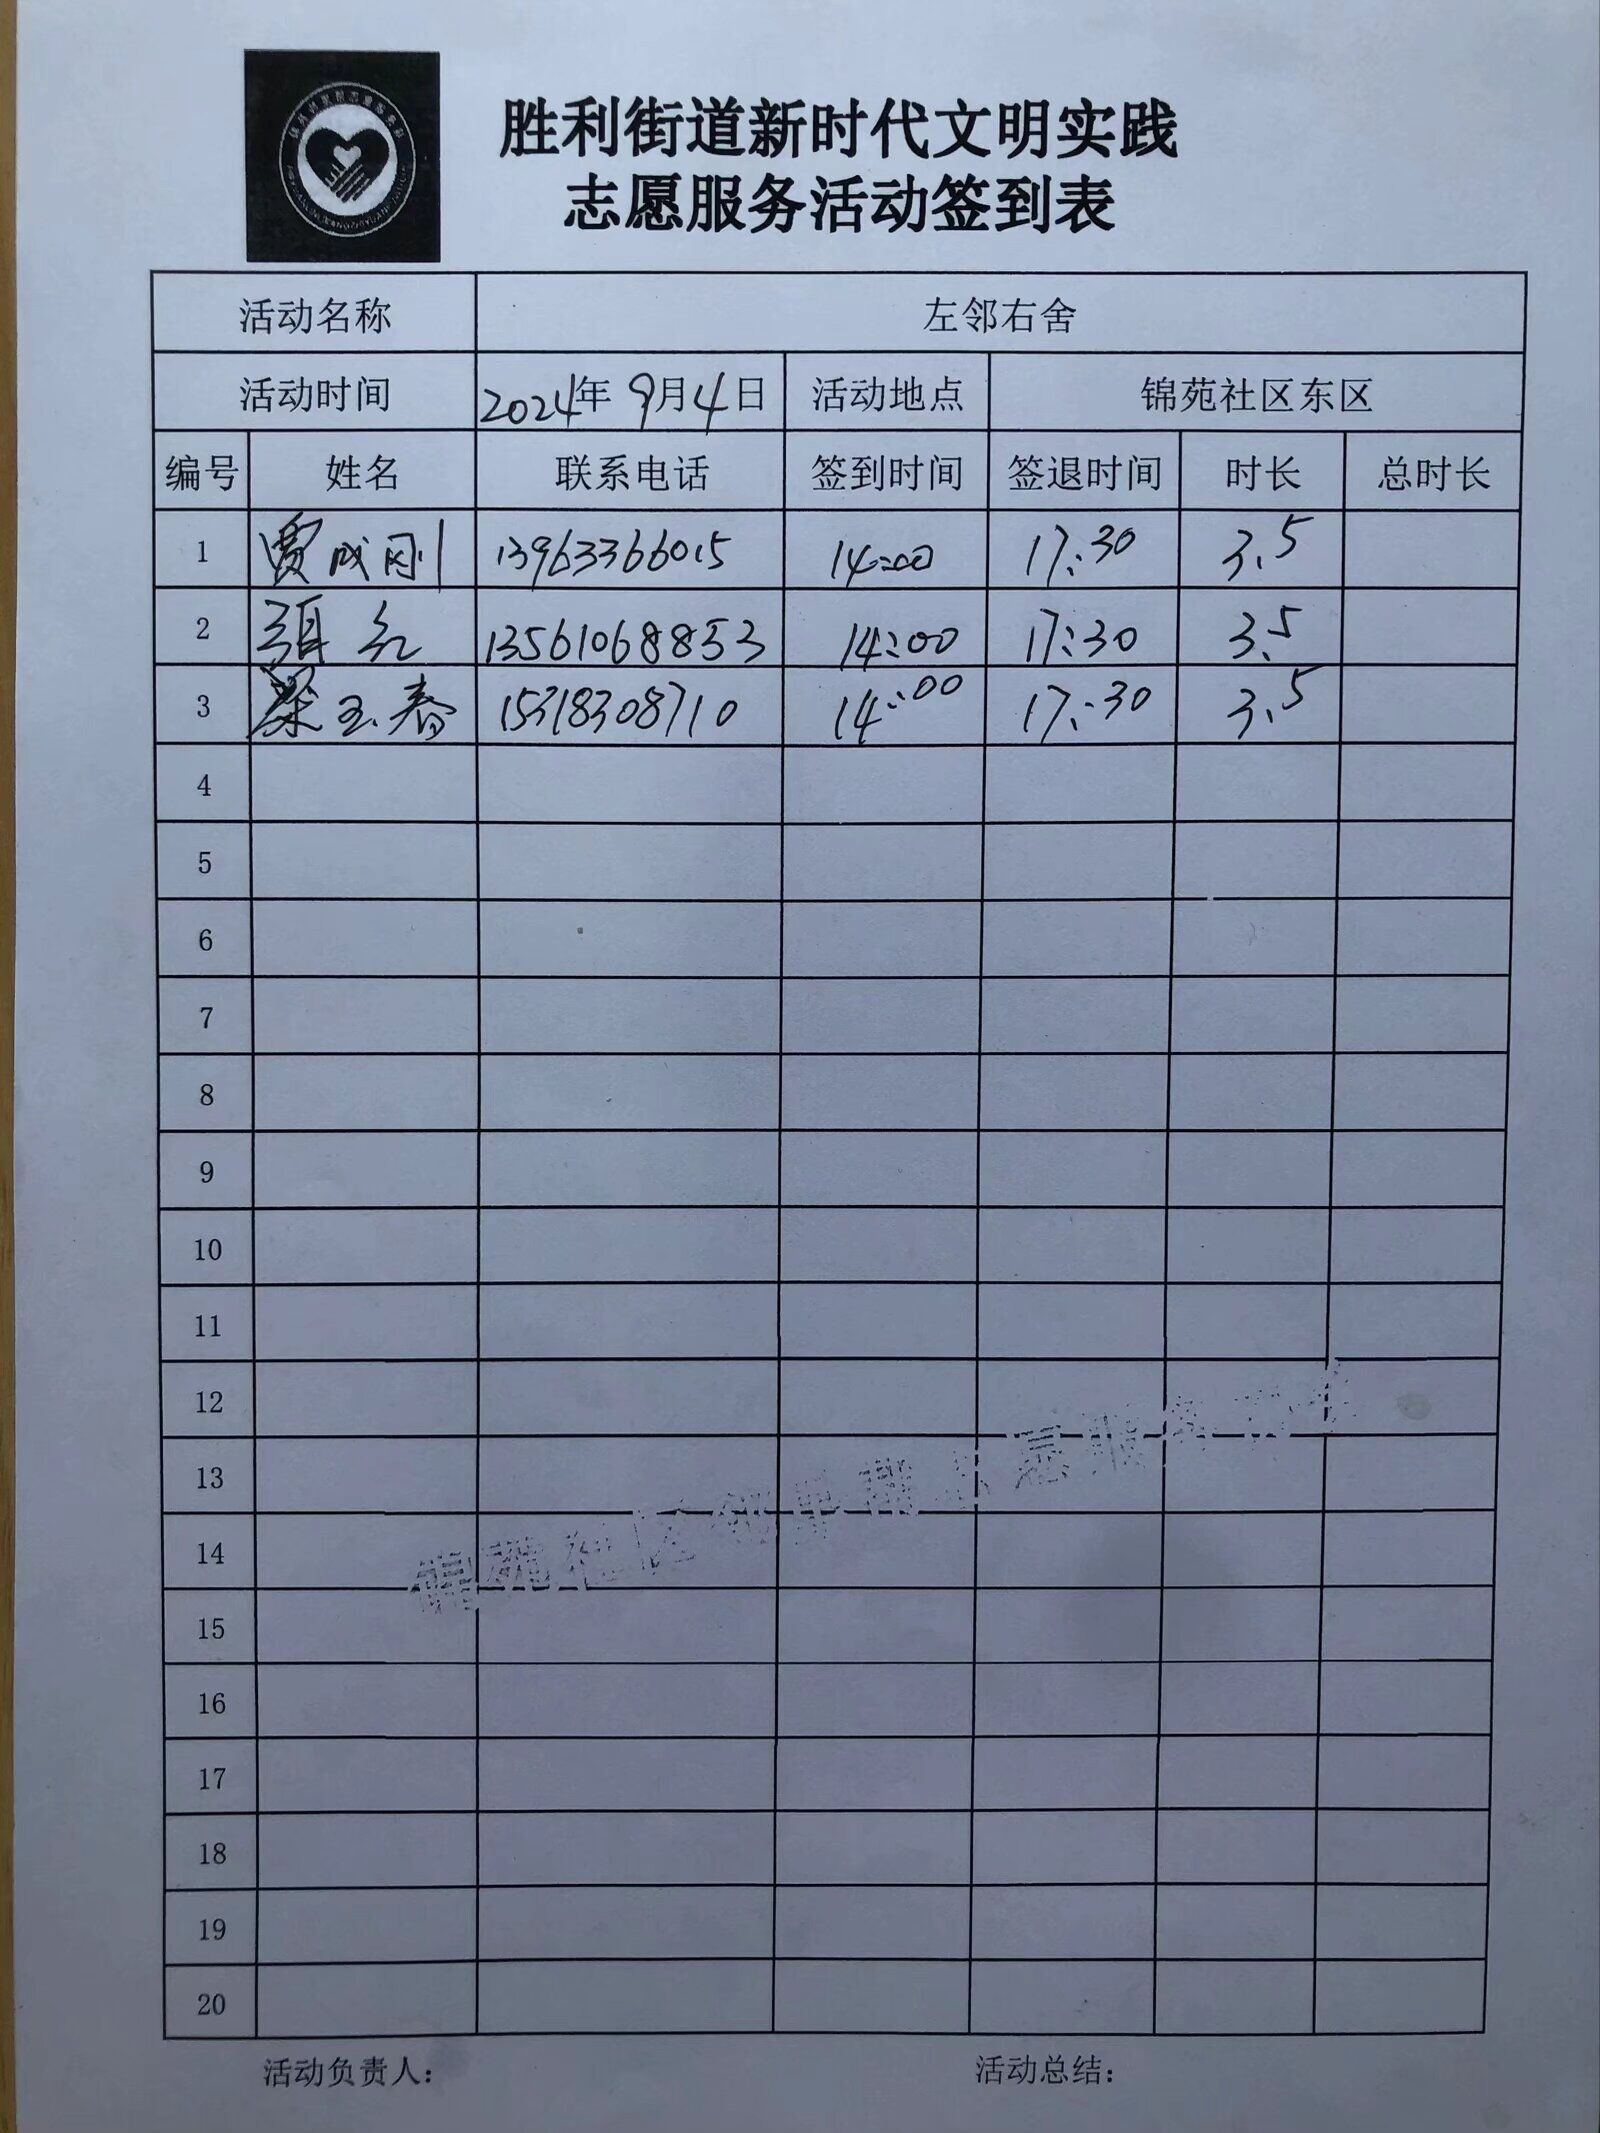 胜利街道新时代文明实践
志愿服务活动签到表
活动名称 左邻右舍
活动时间 2024年 9月4日 活动地点 锦苑社区东区
编号 姓名 联系电话 签到时间 签退时间 时长 总时长
1 贾成刚 13963366015 14:00 17:30 3.5
2 张红 13561068853 14:00 17:30 3.5
3 梁玉春 15318308710 14:00 17:30 3.5
4
5
6
7
8
9
10
11
12
13
14
15
16
17
18
19
20
活动负责人: 活动总结: